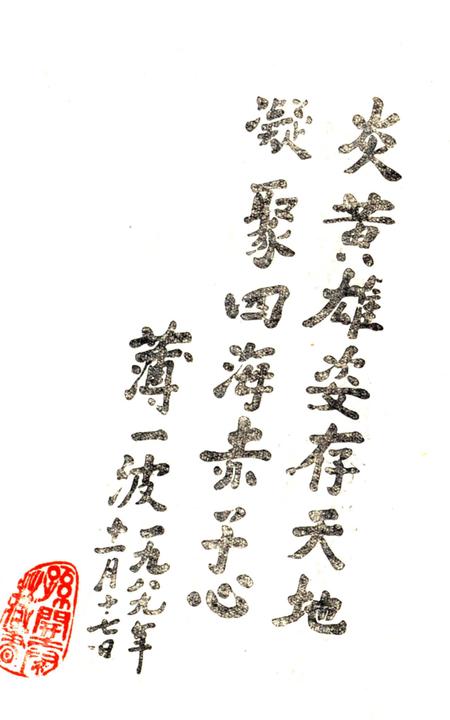 炎黄雄姿存天地
凝聚四海赤子心
薄一波一九八九年
十二月十七日